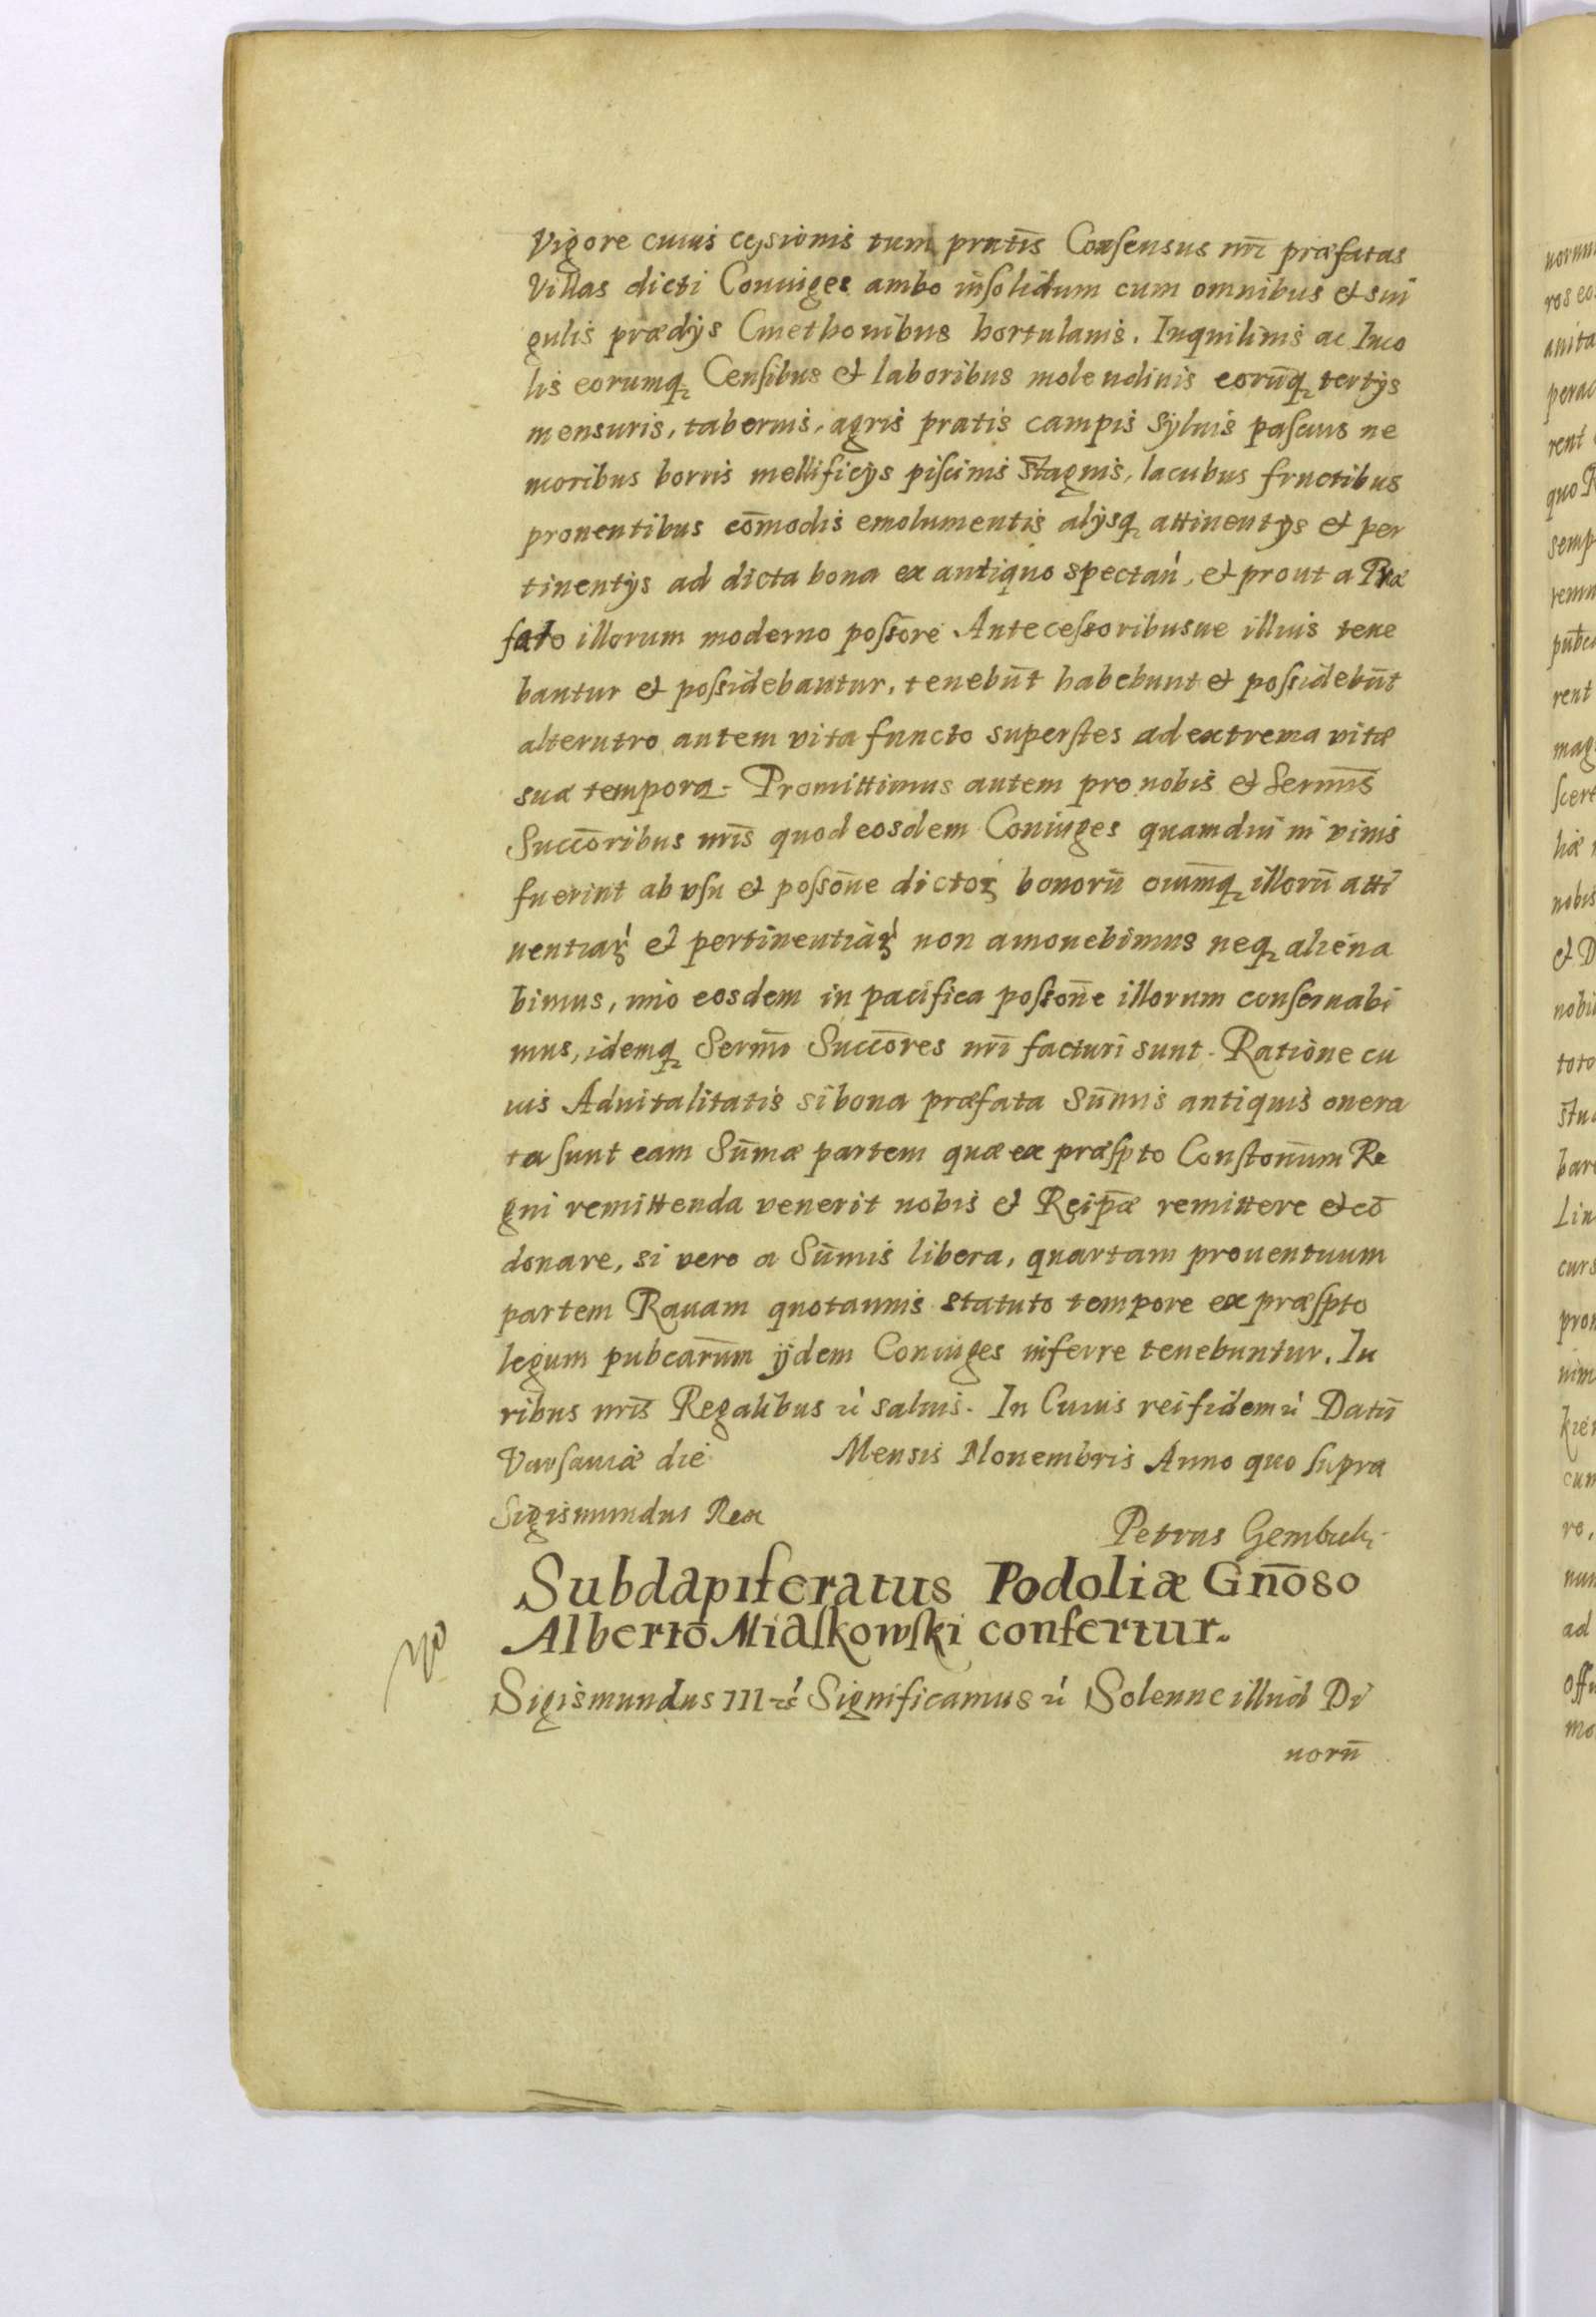 Vigore cuius ceſsionis tum prntis̄ Conſensus nri̅ præfatas
Villas dicti Coniuges ambo inſolidum cum omnibus et sin
gulis prædÿs Cmethonibus hortulanis. Inquilinis ac Inco
lis eorumq₂ Cenſibus et laboribus molendinis eorūq₂ tertÿs
mensuris, tabernis, agris pratis campis Sylvis paſcuis ne
moribus borris mellificÿs piſcinis Stagnis, lacubus fructibus
prouentibus com̄odis emolumentis alÿsq₂ attinentÿs et per
tinentÿs ad dicta bona ex antiquo spectan̄, et prout a Præ
fato illorum moderno poſsōre Anteceſsoribusue illius tene
bantur et poſsidebantur, tenebūt habebunt et poſsidebūt
alterutro autem vita functo superſtes ad extrema vitæ
suæ tempora. Promittimus autem pro nobis et Serm̄is
Succōribus nris̄ quod eosdem Coniuges quamdiu in vivis
fuerint ab vſu et poſsōne dictoꝝ bonorū oīumq₂ illorū atti
nentiaꝝ et pertinentiaꝝ non amouebimus neq₂ aliena
bimus, imo eosdem in pacifica poſsōne illorum conſeruabi
mus, idemq₂ Serm̄i Succōres nri̅ facturi sunt. Ratione cu
ius Aduitalitatis si bona præfata Sūmis antiquis onera
ta ſunt eam Sūmæ partem quæ ex præſpto Conſtōnum Re
gni remittenda venerit nobis et Reip̄æ remittere et cō
donare, si vero a Sūmis libera, quartam prouentuum
partem Rauam quotannis statuto tempore ex præſpto
legum pubcarūm ijdem Coniuges inferre tenebuntur. Iu
ribus nris̄ Regalibus ꝛć saluis. In Cuius rei fidem ꝛć Datū
Varsauiæ die Mensis Nouembris Anno quo ſupra
Sigismundus Rex
Petrus Gembick₂
Subdapiferatus Podoliæ Gn̄oso
Alberto Miaſkowſki confertur.
Sigismundus III ꝛć Significamus ꝛć Solenne illud Di
uorū